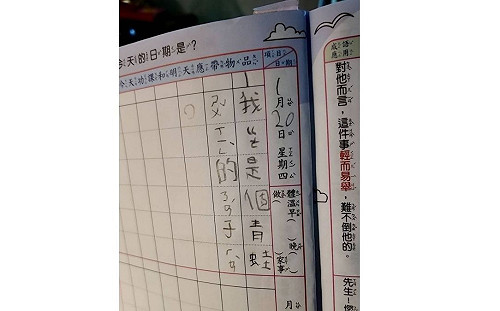 今天的日期是?
今天功課和明天應帶物品
項目
日期
1月20日星期四
體溫早( )晚( )
做家事
月
1我是個青蛙
的子
成語應用
對他而言,這件事輕而易舉,難不倒他的。
先生